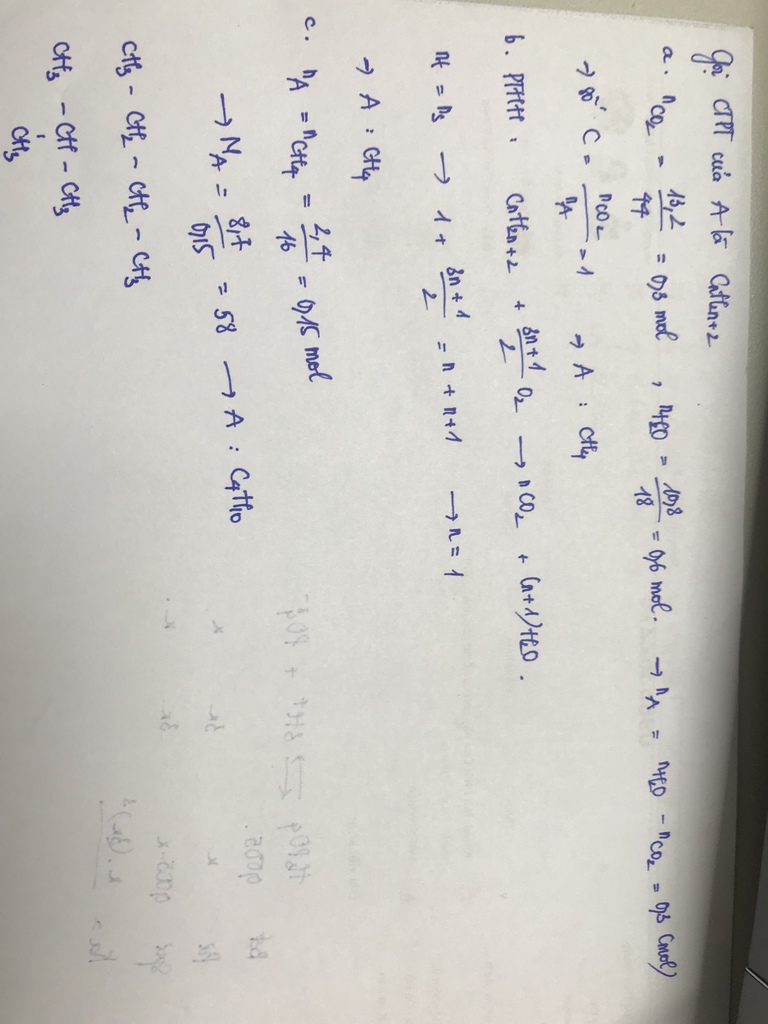 Gọi CTPT của A là CnH2n+2
a. nCO2 = 13,2/44 = 0,3 mol , nH2O = 10,8/18 = 0,6 mol. → nA = nH2O − nCO2 = 0,3 (mol)
→ số C = nCO2/nA = 1 → A : CH4
b. PTHH : CnH2n+2 + (3n+1)/2 O2 → nCO2 + (n+1)H2O.
nt = ns → 1 + (3n+1)/2 = n + n+1 → n = 1
→ A : CH4
c. nA = nCH4 = 2,4/16 = 0,15 mol
→ MA = 8,7/0,15 = 58 → A : C4H10
CH3 − CH2 − CH2 − CH3
CH3 − CH − CH3
CH3